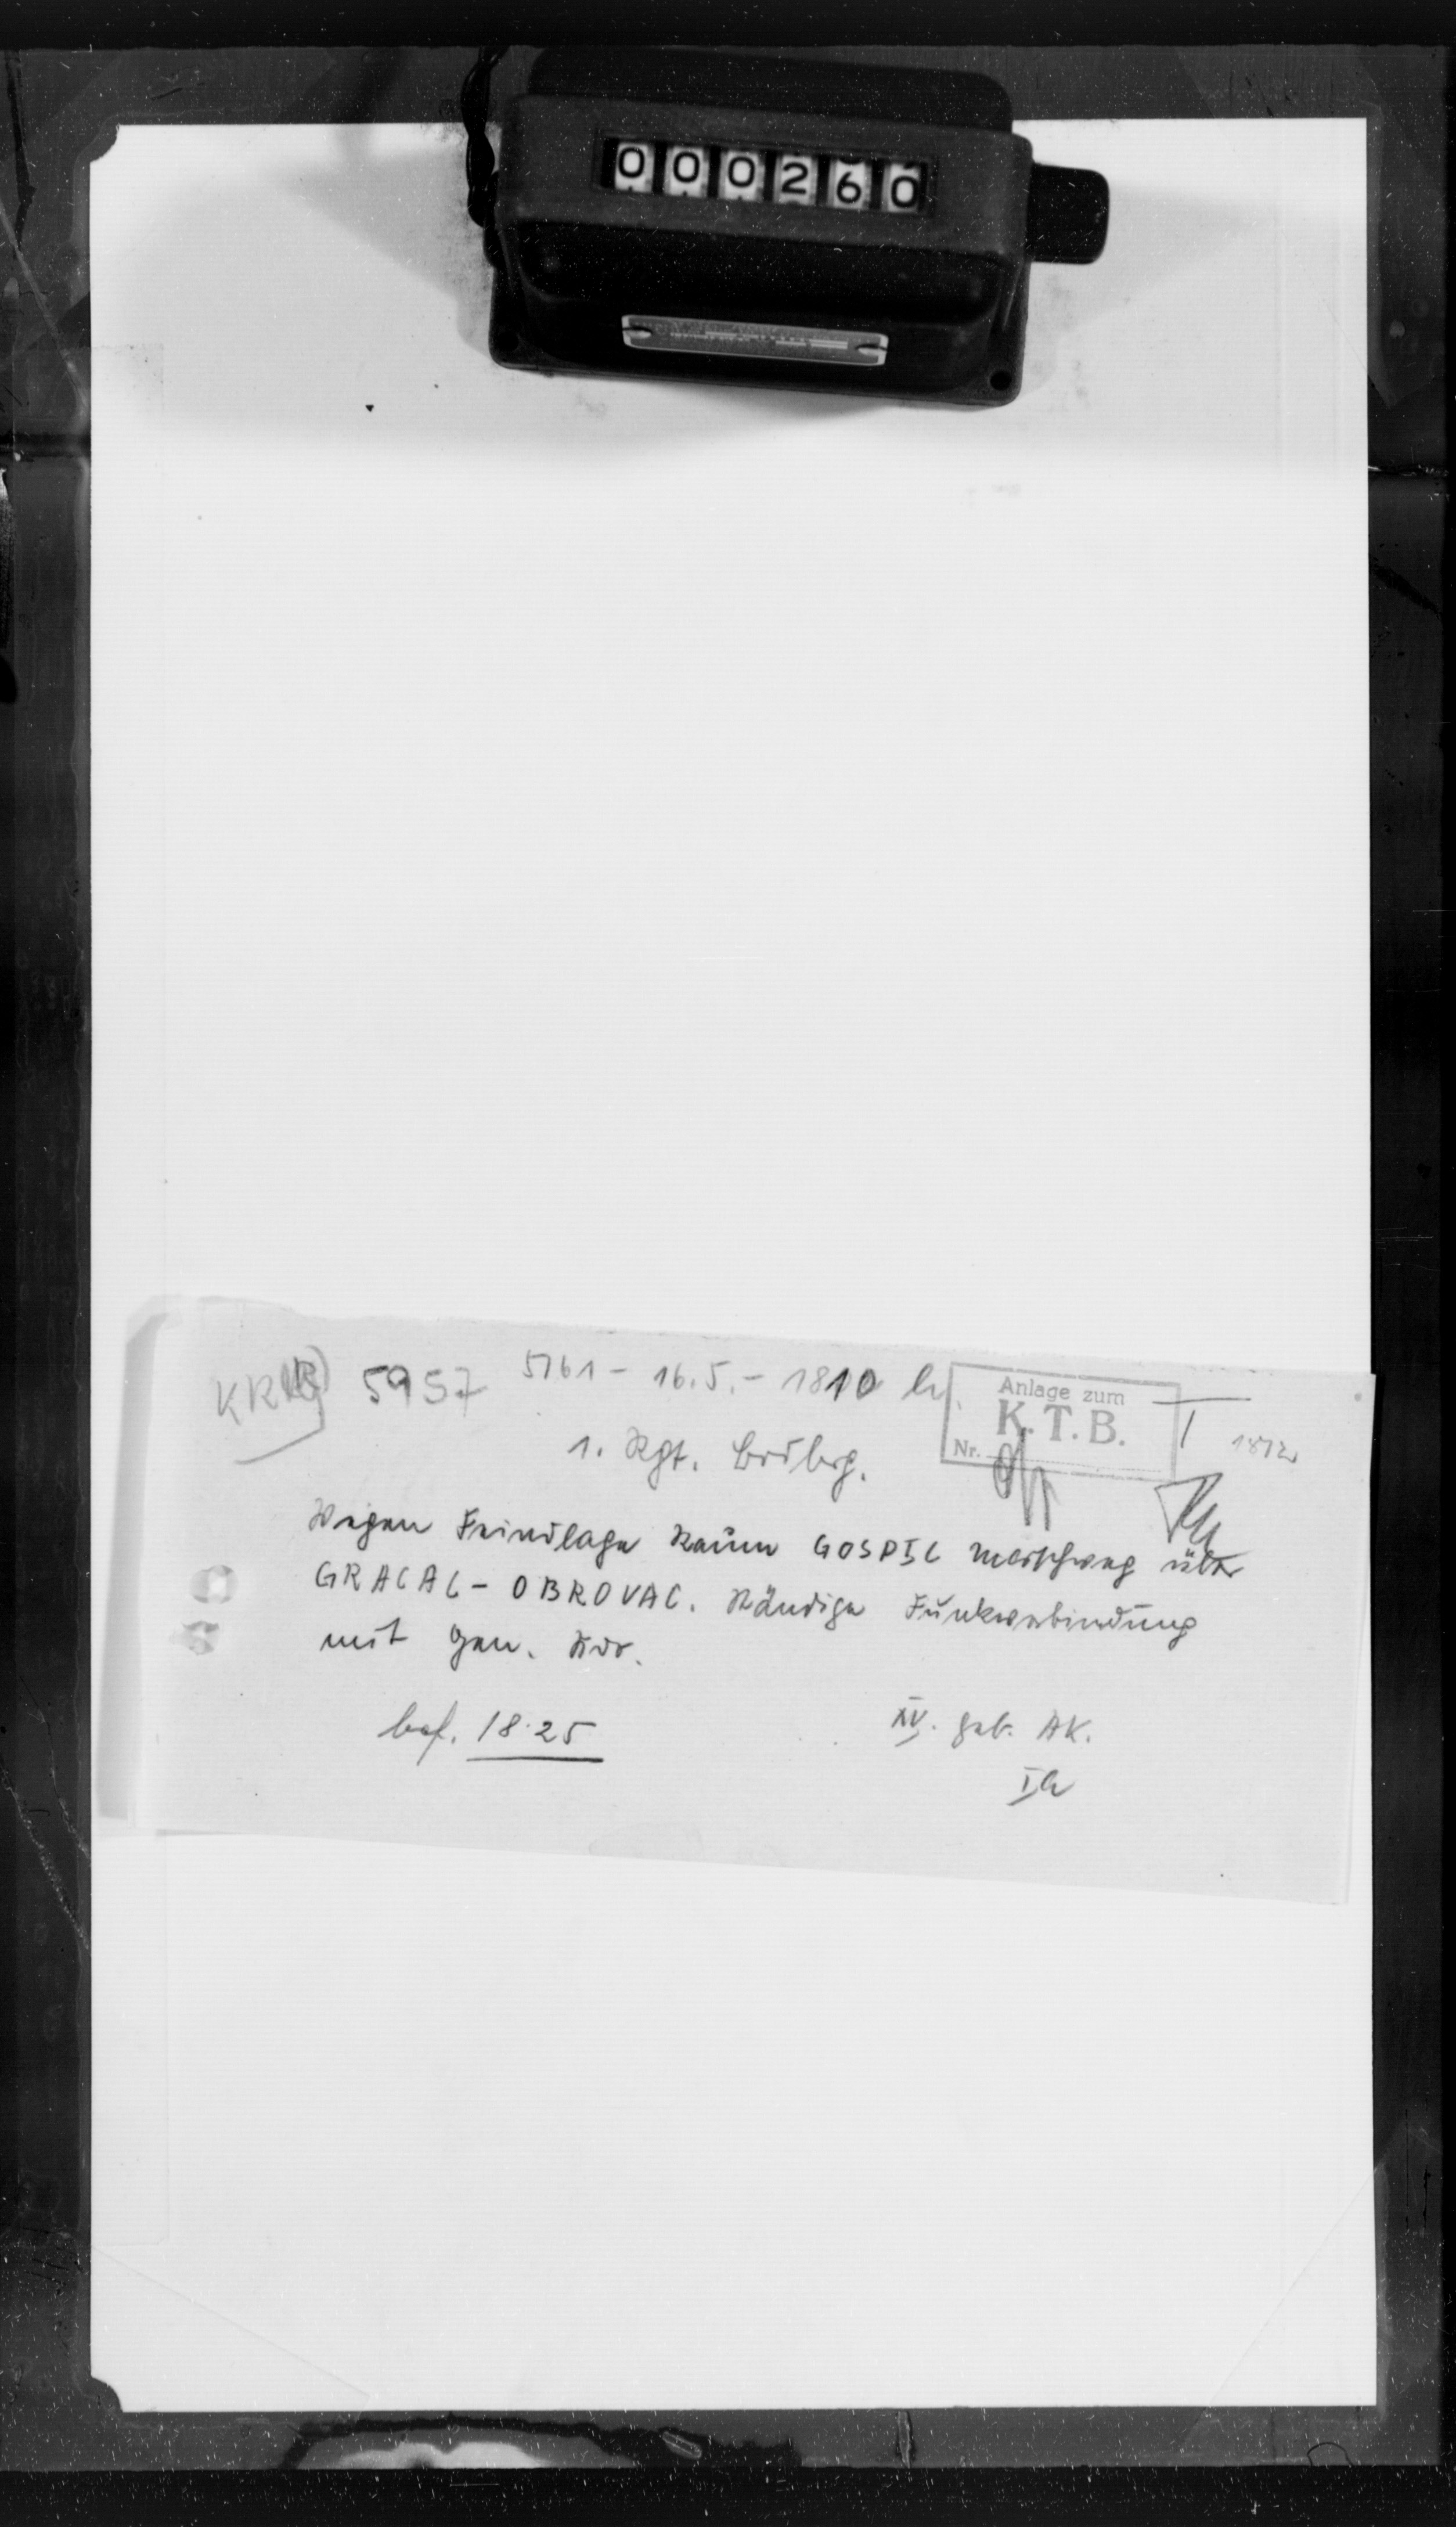 000260
KR 5957 5761 - 16.5. - 1810
Anlage zum
K.T.B.
Nr.
1812
1. Rgt. Brdbg.
Wegen Feindlage Raum GOSPIC Marschweg über
GRACAC - OBROVAC. Ständige Funkverbindung
mit Gen. Kdo.
bef. 18.25
XV. Geb. AK.
Ia